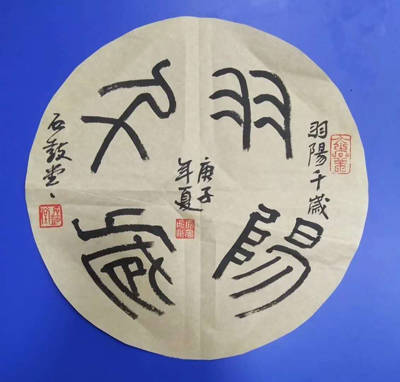 羽陽千歲
羽陽
千歲
庚子
年夏
石鼓堂